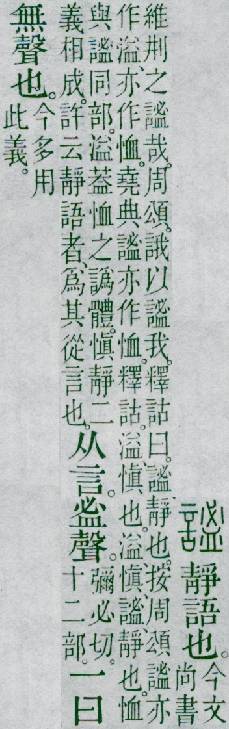 謐 靜語也。今文
尚書
維刑之謐哉。周頌。誐以謐我。釋詁曰。謐、靜也。按周頌謐亦
作溢。亦作恤。堯典謐亦作恤。釋詁。溢、愼也。溢、愼、謐、靜也。恤
與謐同部。溢葢恤之譌體。愼靜二
義相成。許云靜語者、爲其從言也。
从言。𥁑聲。彌必切。
十二部。
一曰
無聲也。今多用
此義。